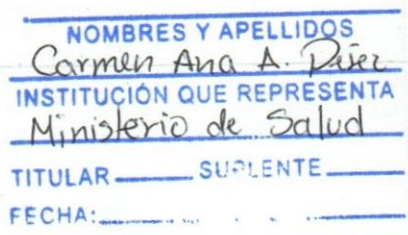 NOMBRES Y APELLIDOS
Carmen Ana A.
INSTITUCIÓN QUE REPRESENTA
Ministerio de Salud
TITULAR SUPLENTE
FECHA: